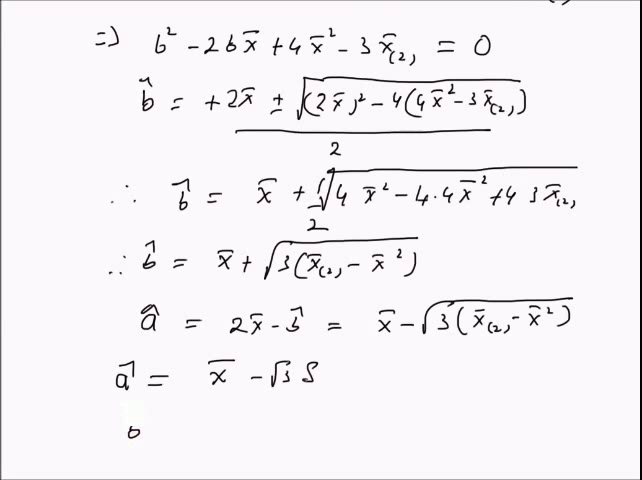 ⇒ b² - 2bx̄ + 4x̄² - 3x̄₍₂₎ = 0
b̂ = +2x̄ ± √((2x̄)² - 4(4x̄² - 3x̄₍₂₎)) / 2
∴ b̂ = x̄ + ½√(4x̄² - 4·4x̄² + 4 3x̄₍₂₎
∴ b̂ = x̄ + √(3(x̄₍₂₎ - x̄²))
â = 2x̄ - b̂ = x̄ - √(3(x̄₍₂₎ - x̄²))
â = x̄ - √3 S
b